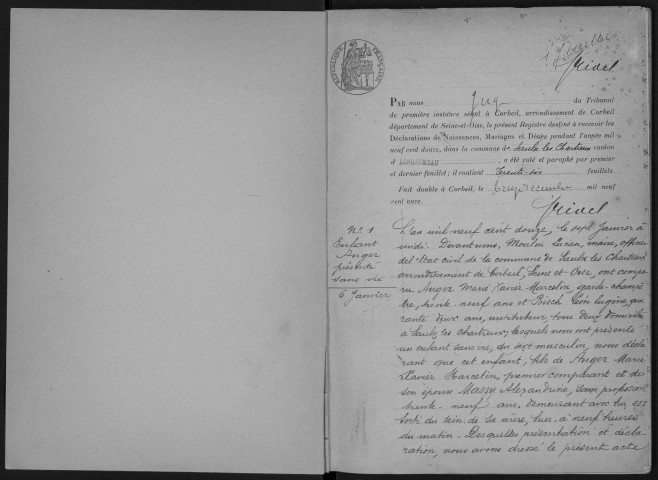 1er feuillet
Ridel
RÉPUBLIQUE FRANÇAISE
PAR nous Juge du Tribunal
de première instance séant à Corbeil, arrondissement de Corbeil
département de Seine-et-Oise, le présent Registre destiné à recevoir les
Déclarations de Naissances, Mariages et Décès pendant l'année mil
neuf cent douze, dans la commune de Saulx les Chartreux canton
d LONGJUMEAU, a été coté et paraphé par premier
et dernier feuillet; il contient trente-six feuillets.
Fait double à Corbeil, le treize décembre mil neuf
cent onze
Ridel
No 1
Enfant
Anger
présenté
sans vie
6 Janvier
L'an mil neuf cent douze, le sept Janvier à
midi. Devant nous, Moulin Lucien, maire, officier
de l'état civil de la commune de Saulx les Chartreux
arrondissement de Corbeil, Seine et Oise, ont compa
ru Anger Marie Xavier Marcelin, garde-champê
tre, trente-neuf ans et Léon Eugène, qua
rante deux ans, instituteur, tous deux domiciliés
à Saulx les Chartreux, lesquels nous ont présenté
un enfant sans vie, du sexe masculin, nous décla
rant que cet enfant, fils de Anger Marie
Xavier Marcelin, premier comparant et de
son épouse Massy Alexandrine, sans profession
trente-neuf ans, demeurant avec lui, est
sorti du sein de sa mère, hier à neuf heures
du matin. Desquelles présentation et décla
ration, nous avons dressé le présent acte